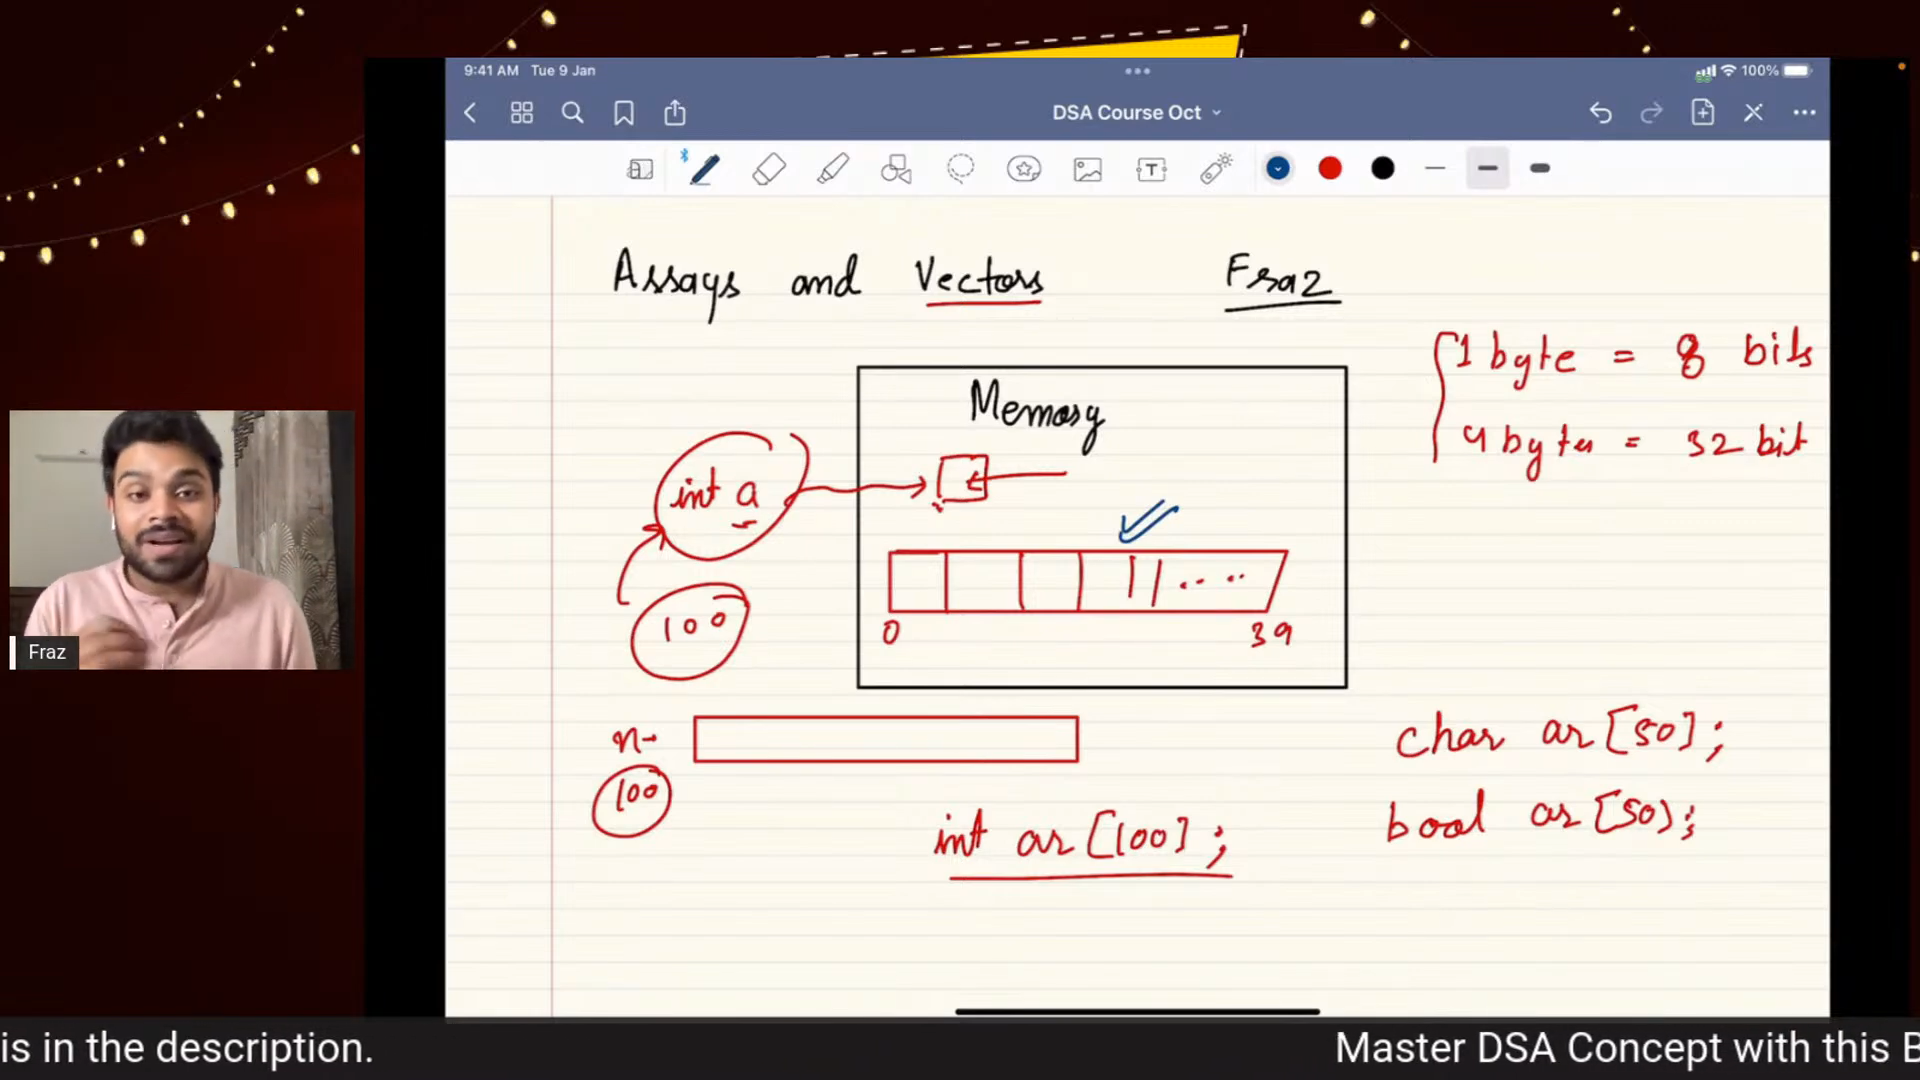 9:41 AM Tue 9 Jan
100%
DSA Course Oct
Arrays and Vectors Fraz
1 byte = 8 bits
4 bytes = 32 bit
Memory
int a
100
0 39
n→
100
char ar[50];
int ar[100];
bool ar[50];
Fraz
is in the description.
Master DSA Concept with this B